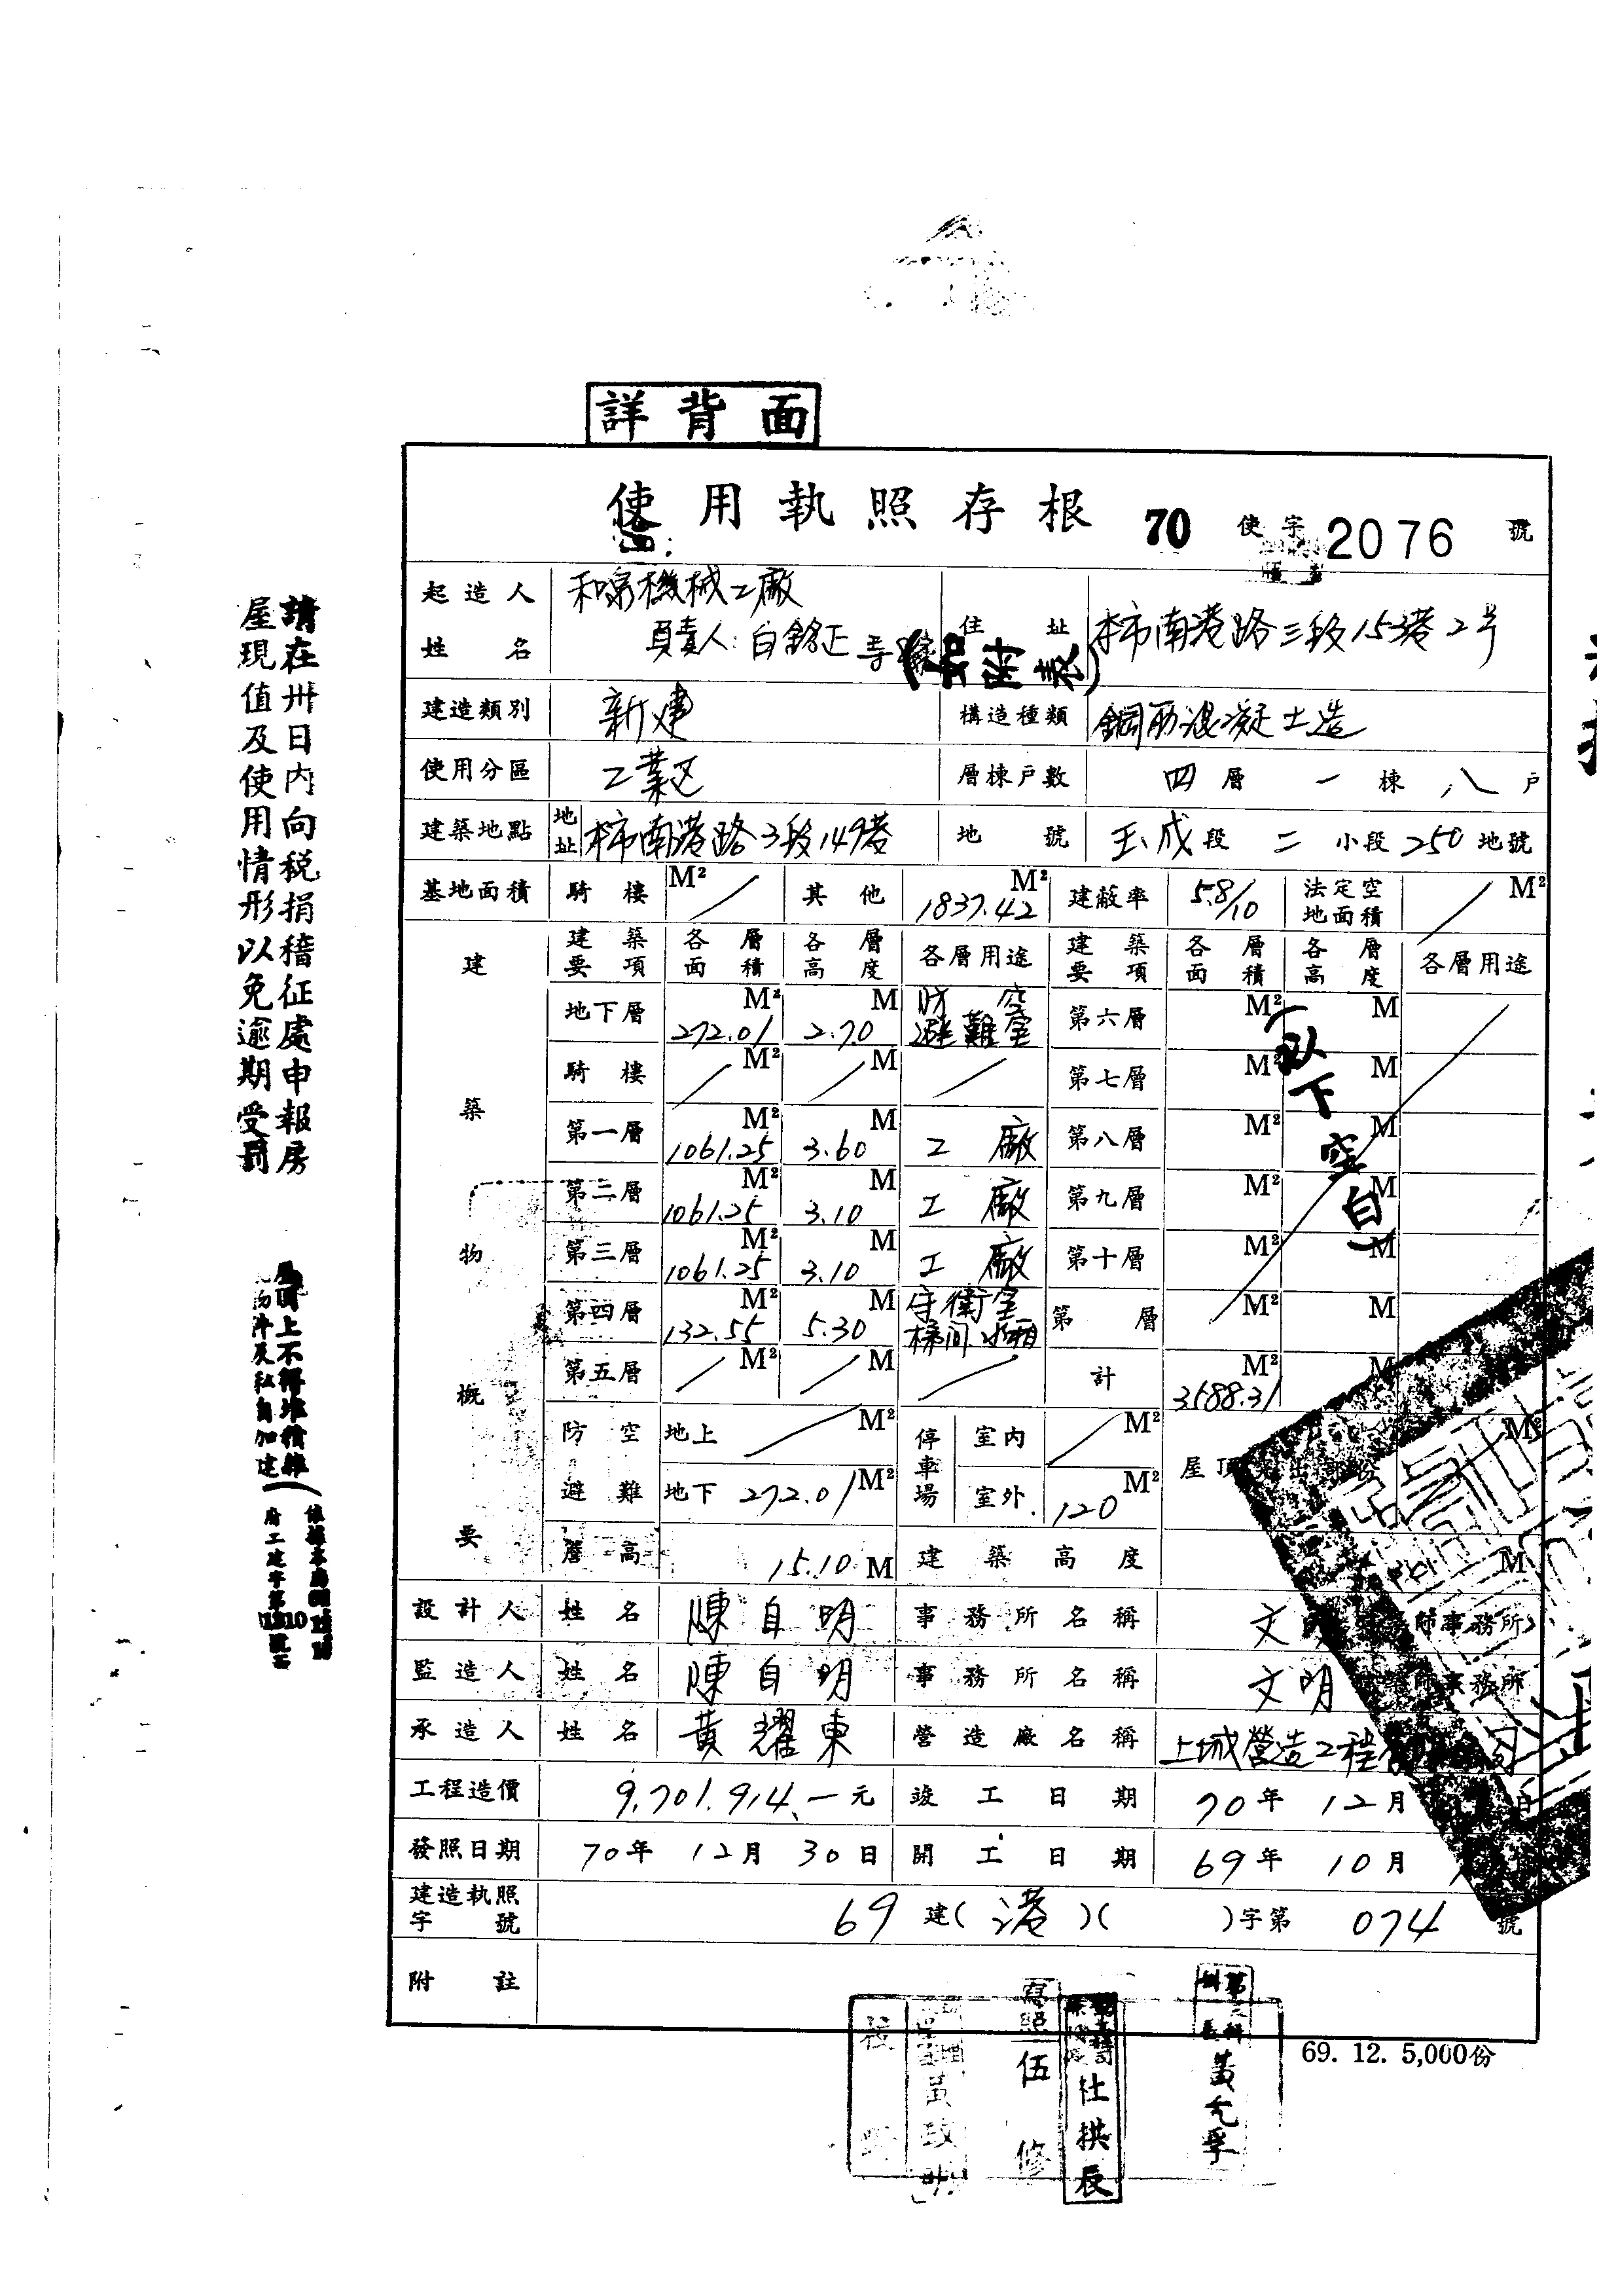 詳背面
使用執照存根 70 使字 2076 號
起造人姓名 和鳴機械工廠
負責人:白銘正
住址 本市南港路三段153巷2号
建造類別 新建 構造種類 鋼筋混凝土造
使用分區 工業区 層棟戶數 四層一棟八戶
建築地點 地址 本市南港路3段149巷 地號 玉成段二小段250地號
基地面積 騎樓 M² / 其他 M² 1837.42 建蔽率 5.8/10 法定空地面積 / M²
建築物概要 建築要項 各層面積 各層高度 各層用途 建築要項 各層面積 各層高度 各層用途
地下層 M² 272.01 M 2.70 防空避難室 第六層 M² M
騎樓 M² / M / / 第七層 M² M
第一層 M² 1061.25 M 3.60 工廠 第八層 M² M
第二層 M² 1061.25 M 3.10 工廠 第九層 M² M
第三層 M² 1061.25 M 3.10 工廠 第十層 M² M
第四層 M² 132.55 M 5.30 守衛室梯间水箱 第 層 M² M
第五層 M² / M / / 計 M² 3588.31 M
(以下空白)
防空避難 地上 / M² 停車場 室內 / M² 屋頂 M²
地下 272.01 M² 室外 120 M²
簷高 15.10 M 建築高度 M
設計人 姓名 陳自明 事務所名稱 文 師事務所
監造人 姓名 陳自明 事務所名稱 文明 師事務所
承造人 姓名 黃耀東 營造廠名稱 上城營造工程 司
工程造價 9,701,914.一元 竣工日期 70年12月 日
發照日期 70年12月30日 開工日期 69年10月
建造執照字號 69建(港)( )字第074號
附註
69. 12. 5,000份
請在卅日內向稅捐稽征處申報房
屋現值及使用情形以免逾期受罰
上不得堆積雜
及私自加建
校
黃政
寫照伍修
杜拱辰
黃允孚